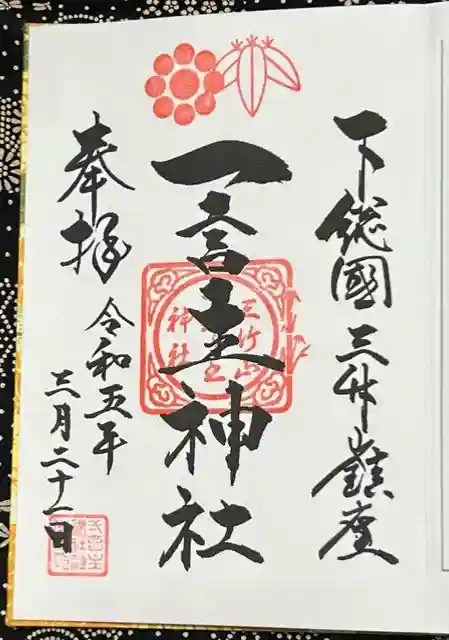 下総國三竹山鎮座
一言主神社
奉拝
令和五年
三月二十一日
三竹山
神社